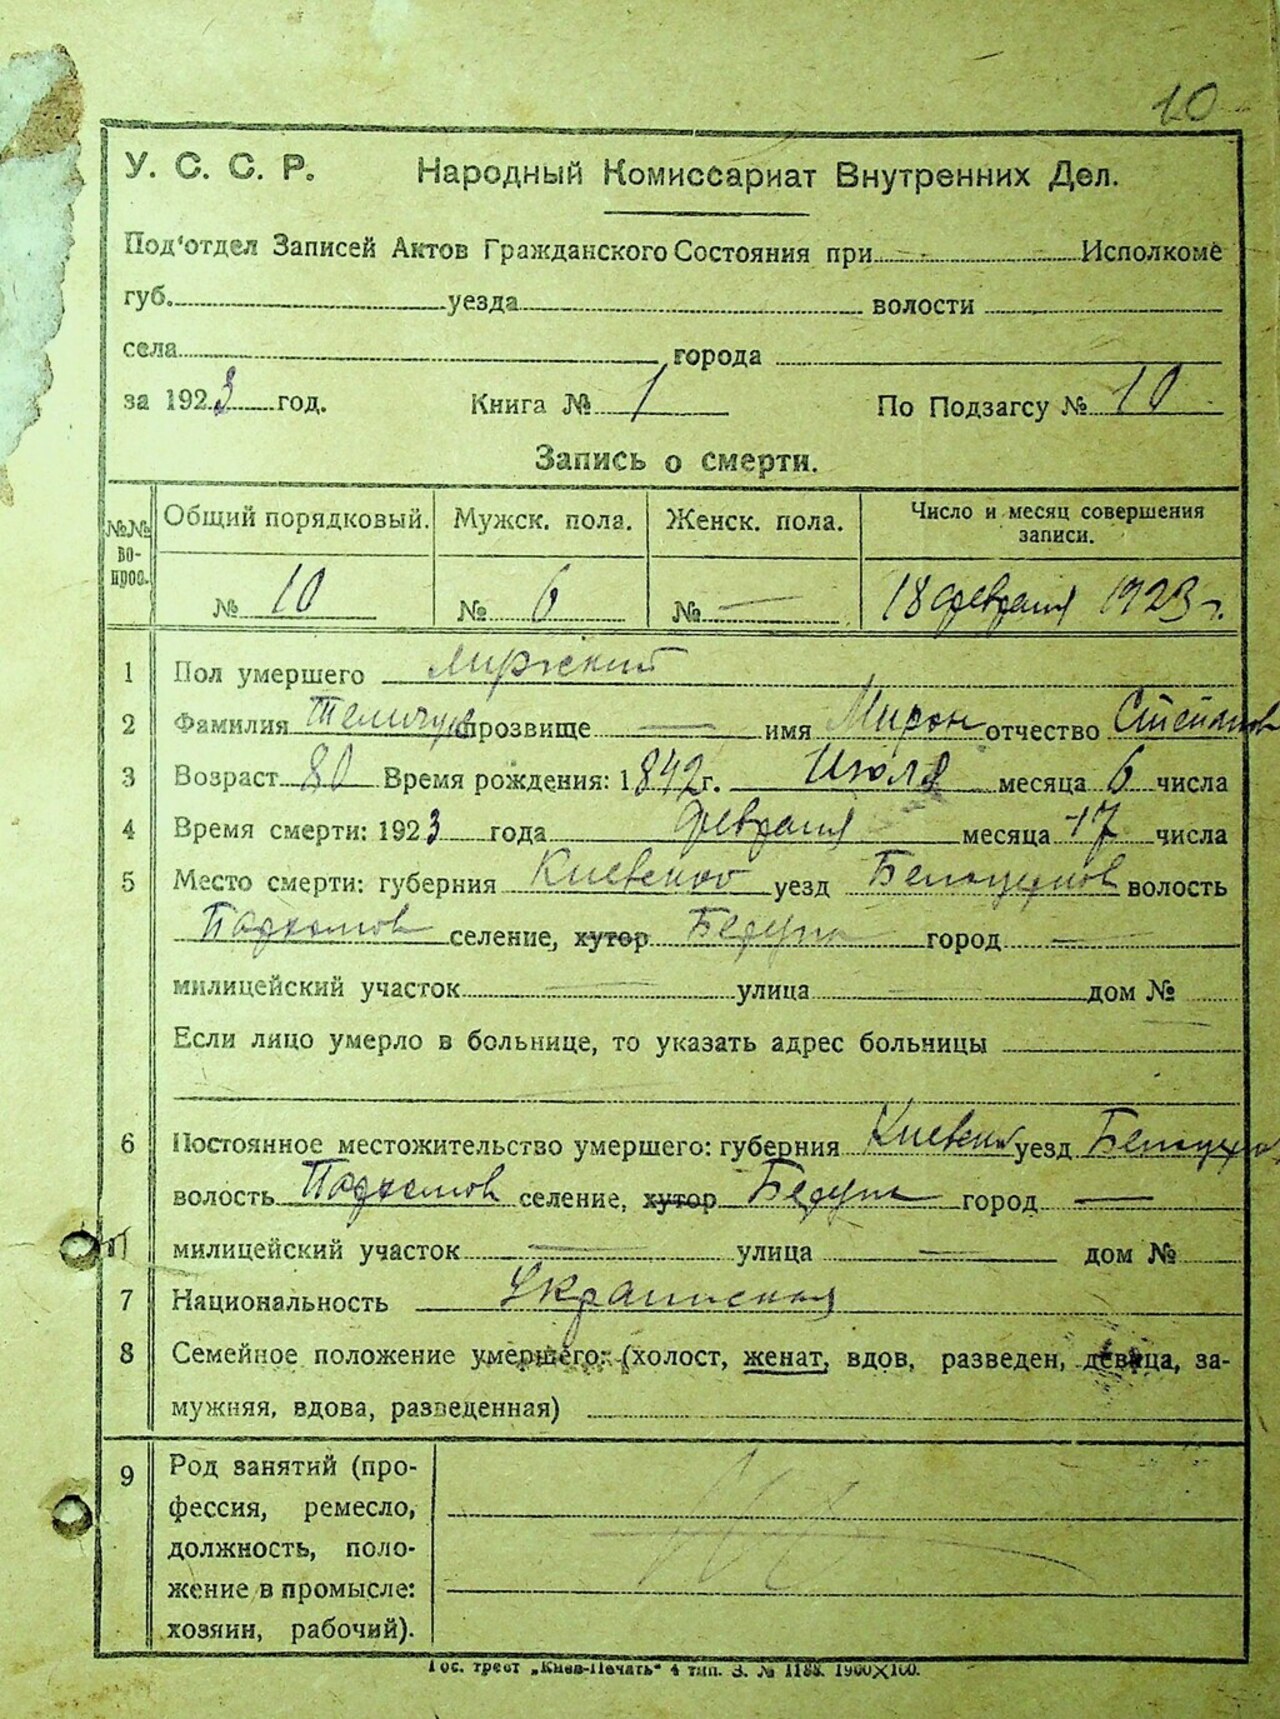 10
У. С. С. Р. Народный Комиссариат Внутренних Дел.
Под'отдел Записей Актов Гражданского Состояния при Исполкоме
губ. уезда волости
села города
за 1923 год. Книга № 1 По Подзагсу № 10
Запись о смерти.
№№ во- прос. Общий порядковый. Мужск. пола. Женск. пола. Число и месяц совершения записи.
№ 10 № 6 № — 18 февраля 1923 г.
1 Пол умершего мужский
2 Фамилия прозвище — имя Мирон отчество Степанов
3 Возраст 80 Время рождения: 1842 г. Июля месяца 6 числа
4 Время смерти: 1923 года февраля месяца 17 числа
5 Место смерти: губерния Киевской уезд Белоцерков волость
селение, хутор город —
милицейский участок — улица — дом №
Если лицо умерло в больнице, то указать адрес больницы
6 Постоянное местожительство умершего: губерния Киевской уезд Белоцерк
волость селение, хутор город —
милицейский участок — улица — дом №
7 Национальность Украинская
8 Семейное положение умершего: (холост, женат, вдов, разведен, девица, за-
мужняя, вдова, разведенная)
9 Род занятий (про-
фессия, ремесло,
должность, поло-
жение в промысле:
хозяин, рабочий).
Гос. трест „Киев-Печать" 4 тип. З. № 1188. 1900X100.